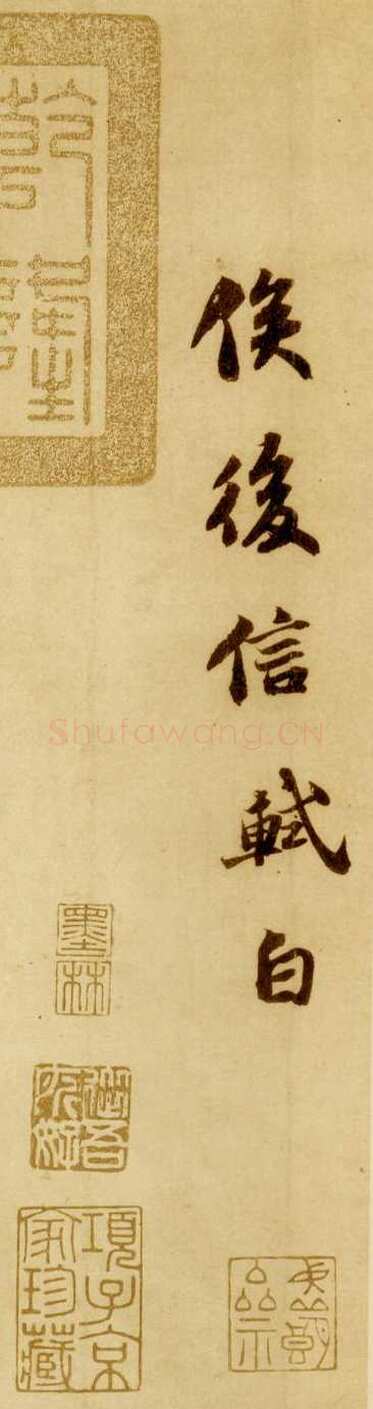 俟後信軾白
Shufawang.CN
墨林
項子京家珍藏